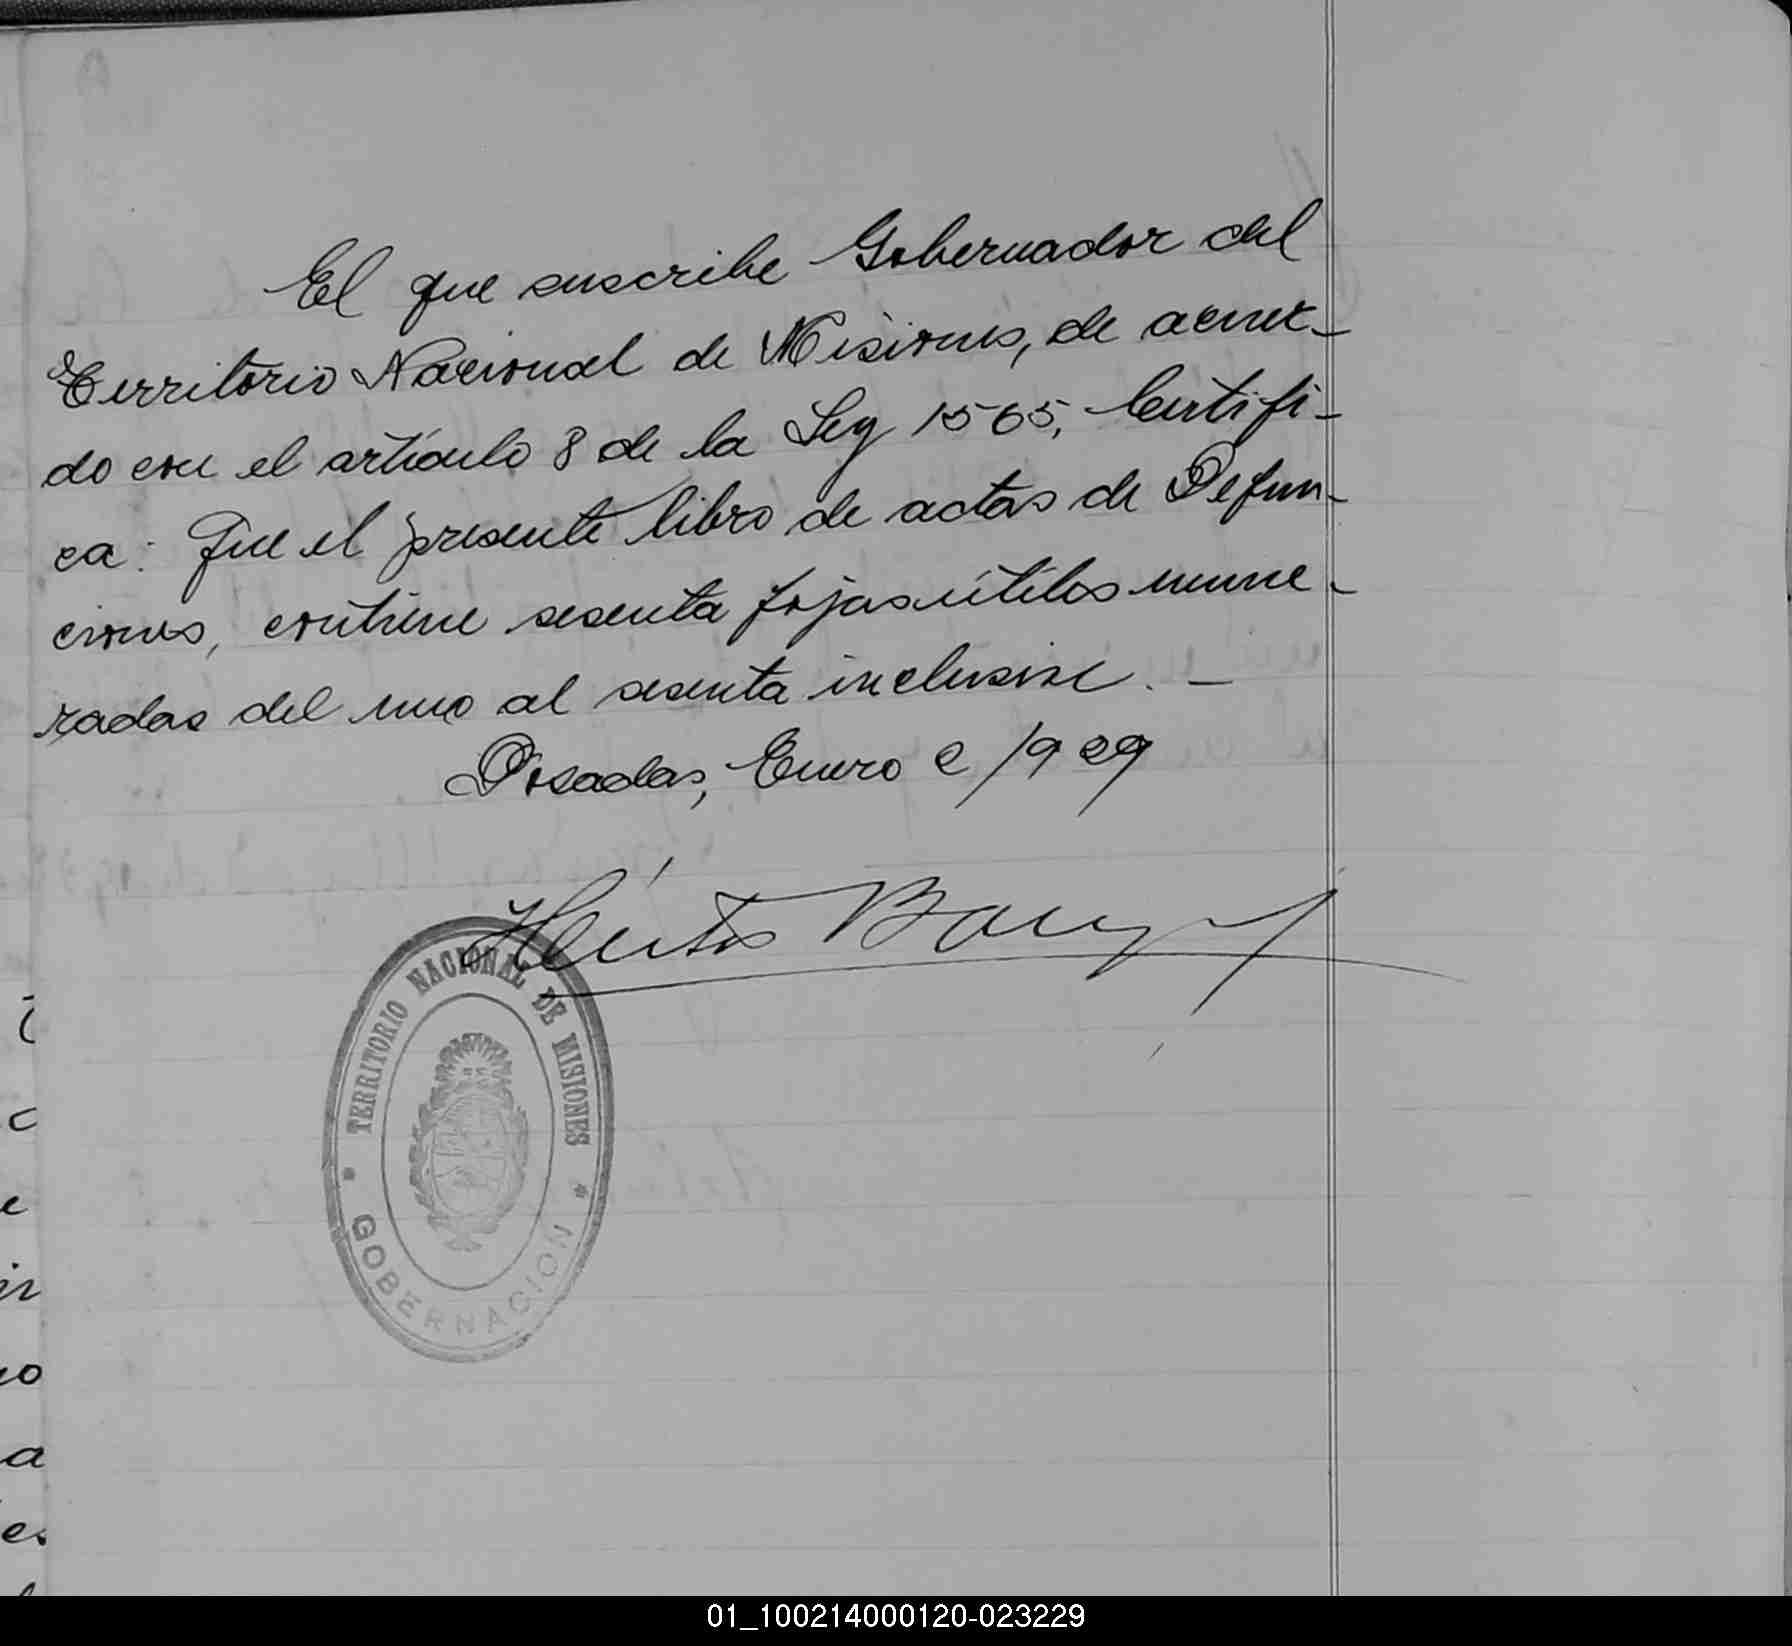 El que suscribe Gobernador del
Territorio Nacional de Misiones, de acuer-
do con el artículo 8 de la Ley 1565, Certifi-
ca: Que el presente libro de actas de Defun-
ciones, contiene sesenta fojas útiles nume-
radas del uno al sesenta inclusive. -
Posadas, Enero 2/929
Héctor
TERRITORIO NACIONAL DE MISIONES
GOBERNACION
01_100214000120-023229